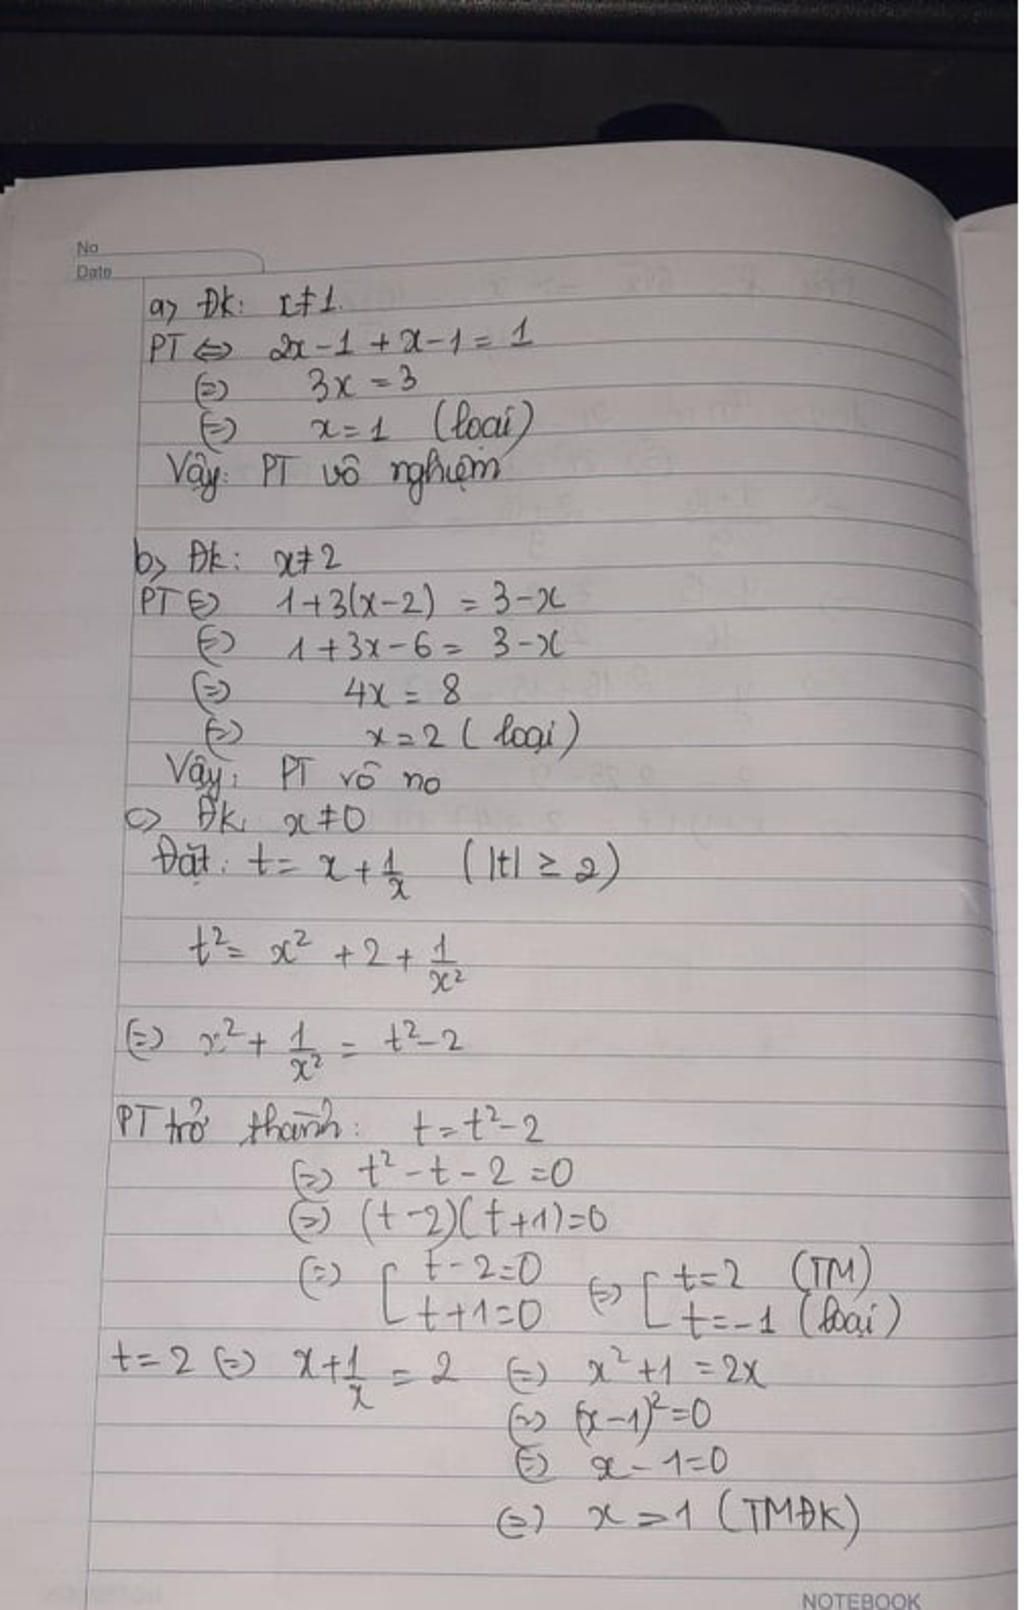 No
Date
a) Đk: x≠1.
PT ⇔ 2x-1+x-1=1
⇔ 3x=3
⇔ x=1 (loại)
Vậy: PT vô nghiệm
b) Đk: x≠2
PT ⇔ 1+3(x-2) = 3-x
⇔ 1+3x-6= 3-x
⇔ 4x = 8
⇔ x=2 (loại)
Vậy: PT vô no
c) Đk: x≠0
Đặt: t= x+1/x (|t| ≥ 2)
t²= x² +2+ 1/x²
⇔ x²+ 1/x² = t²-2
PT trở thành: t=t²-2
⇔ t²-t-2=0
⇔ (t-2)(t+1)=0
⇔ [ t-2=0 ⇔ [ t=2 (TM)
t+1=0 t=-1 (loại)
t=2 ⇔ x+1/x = 2 ⇔ x²+1=2x
⇔ (x-1)²=0
⇔ x-1=0
⇔ x=1 (TMĐK)
NOTEBOOK